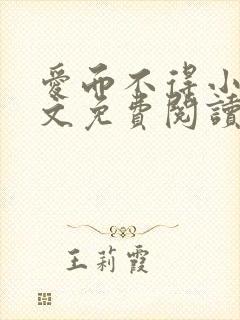 愛而不得小
文免費閱讀
王莉霞